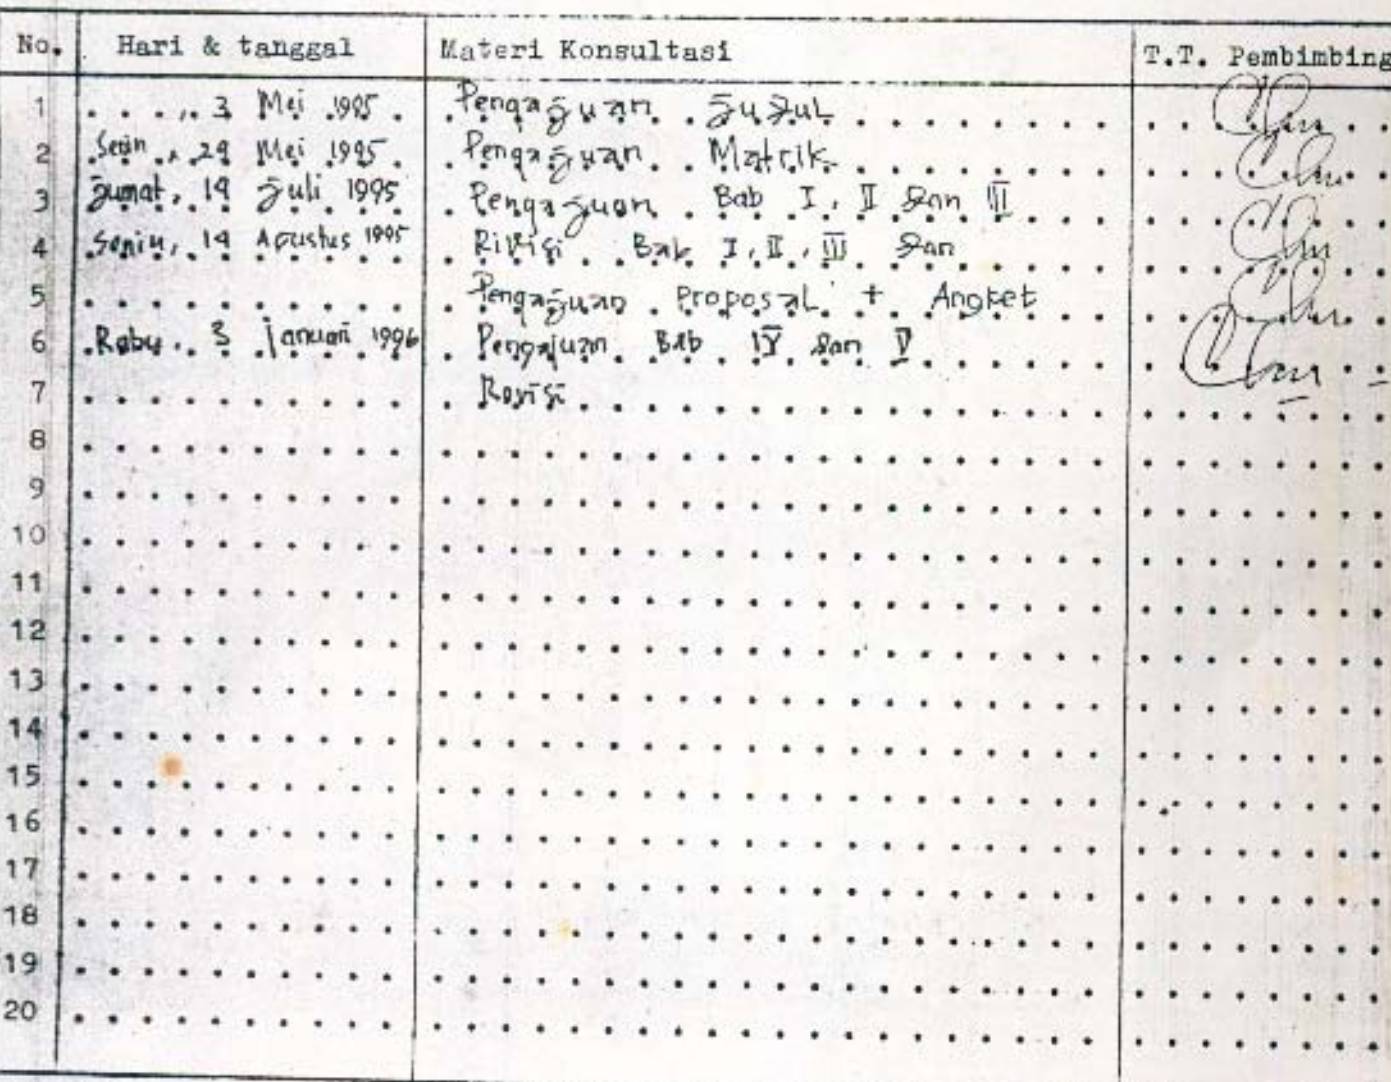 No. Hari & tanggal Materi Konsultasi T.T. Pembimbing
1 3 Mei 1995 Pengajuan Judul
2 Senin, 29 Mei 1995 Pengajuan Matrik
3 Jumat, 14 Juli 1995 Pengajuan Bab I, II dan III
4 Senin, 14 Agustus 1995 Rivisi Bab I, II, III dan
5 Pengajuan Proposal + Angket
6 Rabu, 3 Januari 1996 Pengajuan Bab IV dan V
7 Revisi
8
9
10
11
12
13
14
15
16
17
18
19
20